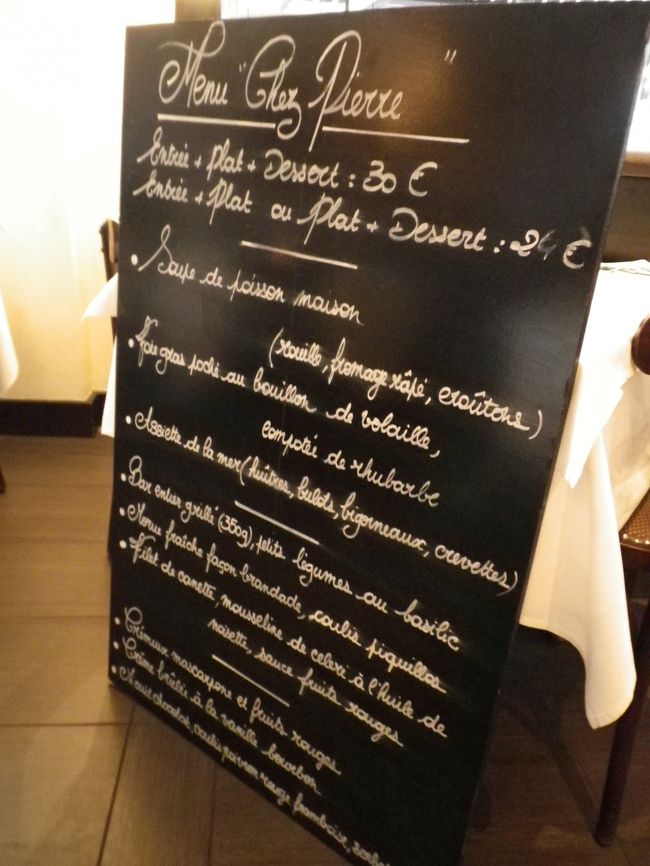 Menu "Chez Pierre"
Entrée + Plat + Dessert : 30 €
Entrée + Plat ou Plat + Dessert : 24 €
• Soupe de poisson maison
(rouille, fromage râpé, croûtons)
• Foie gras poché au bouillon de volaille,
compotée de rhubarbe
• Assiette de la mer (huîtres, bulots, bigorneaux, crevettes)
• Bar entier grillé (350g), petits légumes au basilic
• Morue fraîche façon brandade, coulis piquillos
• Filet de canette, mousseline de celeri à l'huile de
noisette, sauce fruits rouges
• Crémeux mascarpone et fruits rouges
• Crème brûlée à la vanille bourbon
• chocolat, coulis poivron rouge framboise,